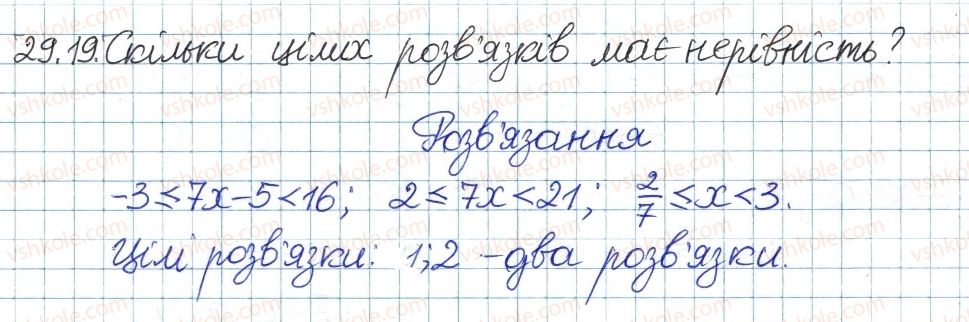 29.19. Скільки цілих розв'язків має нерівність?
Розв'язання
-3 ≤ 7x - 5 < 16; 2 ≤ 7x < 21; 2/7 ≤ x < 3.
Цілі розв'язки: 1; 2 - два розв'язки.